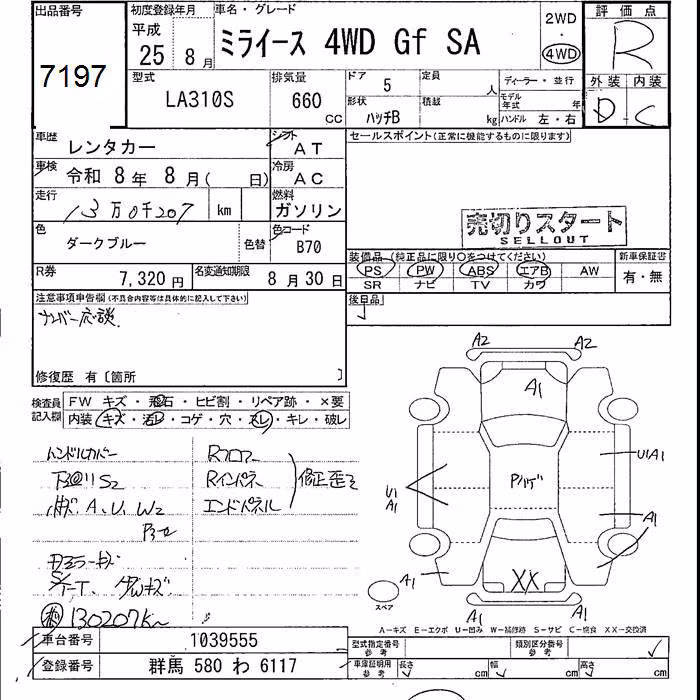 出品番号
7197
初度登録年月
平成
25年8月
車名・グレード
ミライース 4WD Gf SA
2WD
・
4WD
評価点
R
外装 内装
D - C
型式
LA310S
排気量
660
CC
ドア
5
定員
人
形状
ハッチB
積載
kg
ディーラー・並行
モデル年式 年
ハンドル 左・右
車歴
レンタカー
シフト
AT
車検
令和 8年 8月( 日)
冷房
AC
走行
13万0千207 km
燃料
ガソリン
色
ダークブルー
色替
色コード
B70
R券
7,320円
名変通知期限
8月30日
セールスポイント(正常に機能するものに限ります)
売切りスタート
SELLOUT
装備品(純正品に限り○をつけてください)
PS PW ABS エアB AW
SR ナビ TV カワ
新車保証書
有・無
後日品
注意事項申告欄(不具合内容等は具体的に記入して下さい)
ナンバー応談
修復歴 有〔箇所 〕
検査員記入欄
FW キズ・飛石・ヒビ割・リペア跡・×要
内装 キズ・汚レ・コゲ・穴・スレ・キレ・破レ
ハンドルカバー
S2
A、U、W2
Rフロア
Rインパネ
エンドパネル
修正歪ミ
130207K
A2 A2
A1
U1A1
U1
A1
Pハゲ
A1
A1
XX
A1 A1
スペア
A-キズ E-エクボ U-凹み W-補修跡 S-サビ C-腐食 XX-交換済
車台番号
1039555
登録番号
群馬 580 わ 6117
型式指定番号
参考
類別区分番号
参考
車庫証明用
参考
長さ cm
幅 cm
高さ cm